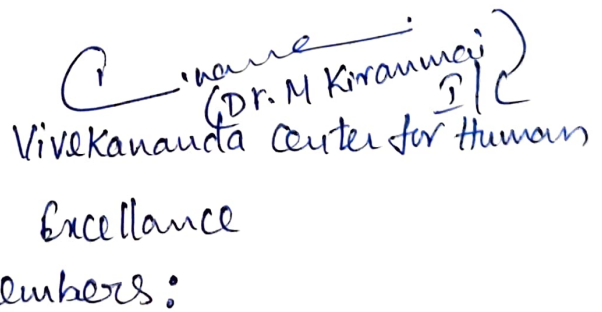 (Dr. M Kiranmai)
I/C
Vivekananda Center for Human
Excellance
embers: